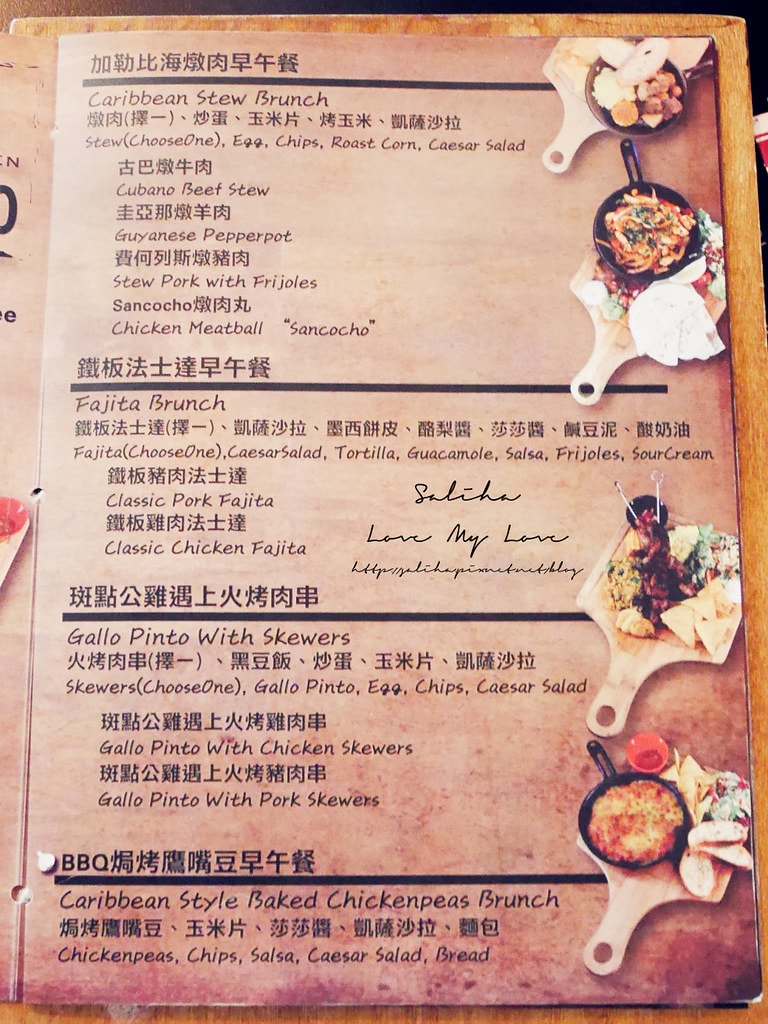 加勒比海燉肉早午餐
Caribbean Stew Brunch
燉肉(擇一)、炒蛋、玉米片、烤玉米、凱薩沙拉
Stew(ChooseOne), Egg, Chips, Roast Corn, Caesar Salad
古巴燉牛肉
Cubano Beef Stew
圭亞那燉羊肉
Guyanese Pepperpot
費何列斯燉豬肉
Stew Pork with Frijoles
Sancocho燉肉丸
Chicken Meatball “Sancocho”
鐵板法士達早午餐
Fajita Brunch
鐵板法士達(擇一)、凱薩沙拉、墨西餅皮、酪梨醬、莎莎醬、鹹豆泥、酸奶油
Fajita(ChooseOne),CaesarSalad, Tortilla, Guacamole, Salsa, Frijoles, SourCream
鐵板豬肉法士達
Classic Pork Fajita
鐵板雞肉法士達
Classic Chicken Fajita
Saliha
Love My Love
http://saliha.pixnet.net/blog
斑點公雞遇上火烤肉串
Gallo Pinto With Skewers
火烤肉串(擇一)、黑豆飯、炒蛋、玉米片、凱薩沙拉
Skewers(ChooseOne), Gallo Pinto, Egg, Chips, Caesar Salad
斑點公雞遇上火烤雞肉串
Gallo Pinto With Chicken Skewers
斑點公雞遇上火烤豬肉串
Gallo Pinto With Pork Skewers
BBQ焗烤鷹嘴豆早午餐
Caribbean Style Baked Chickenpeas Brunch
焗烤鷹嘴豆、玉米片、莎莎醬、凱薩沙拉、麵包
Chickenpeas, Chips, Salsa, Caesar Salad, Bread